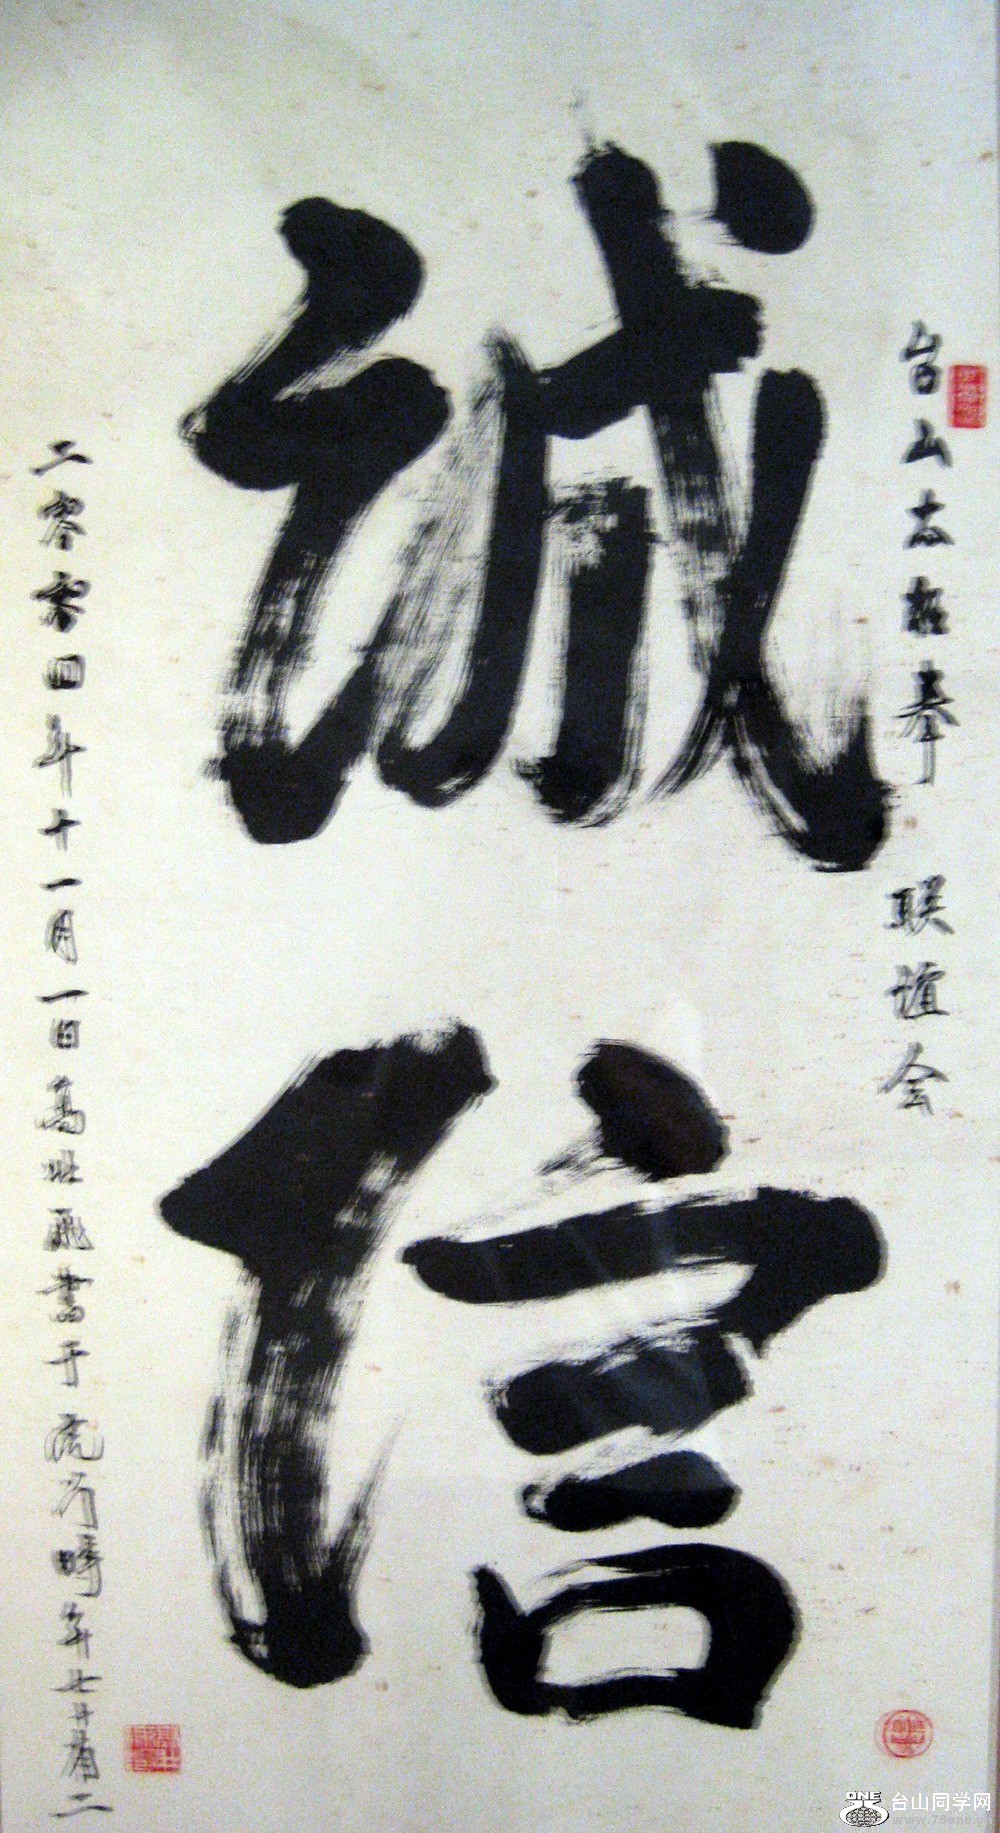 台山太极拳
联谊会
誠信
二零零四年十一月一日高壮飞書于虎门時年七十有二
台山同学网